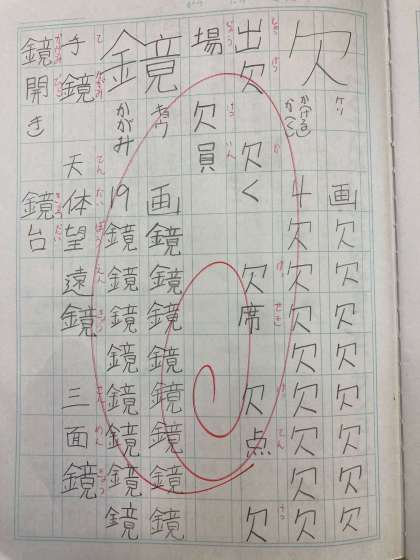 欠 ケツ かける かく 4画
欠欠欠欠欠欠欠欠
欠欠欠欠欠欠欠欠
出欠 欠く 欠席 欠点 欠
場 欠員
鏡 キョウ かがみ 19画
鏡鏡鏡鏡鏡鏡鏡鏡
鏡鏡鏡鏡鏡鏡鏡鏡
手鏡 天体望遠鏡 三面鏡
鏡開き 鏡台